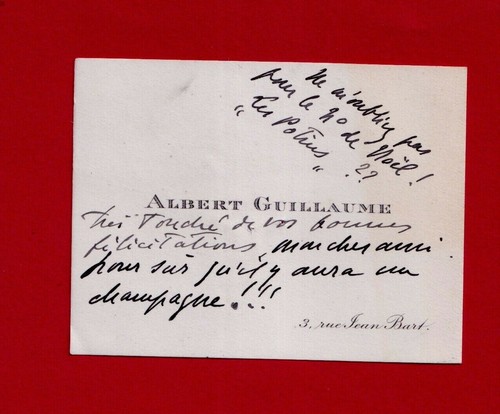 Ne m'oubliez pas
pour le no de Noël !
" Les Potins " . ??
ALBERT GUILLAUME
Très touché de vos bonnes
félicitations, marchez
pour sûr qu'il y aura un
champagne . !!!
3, rue Jean Bart.